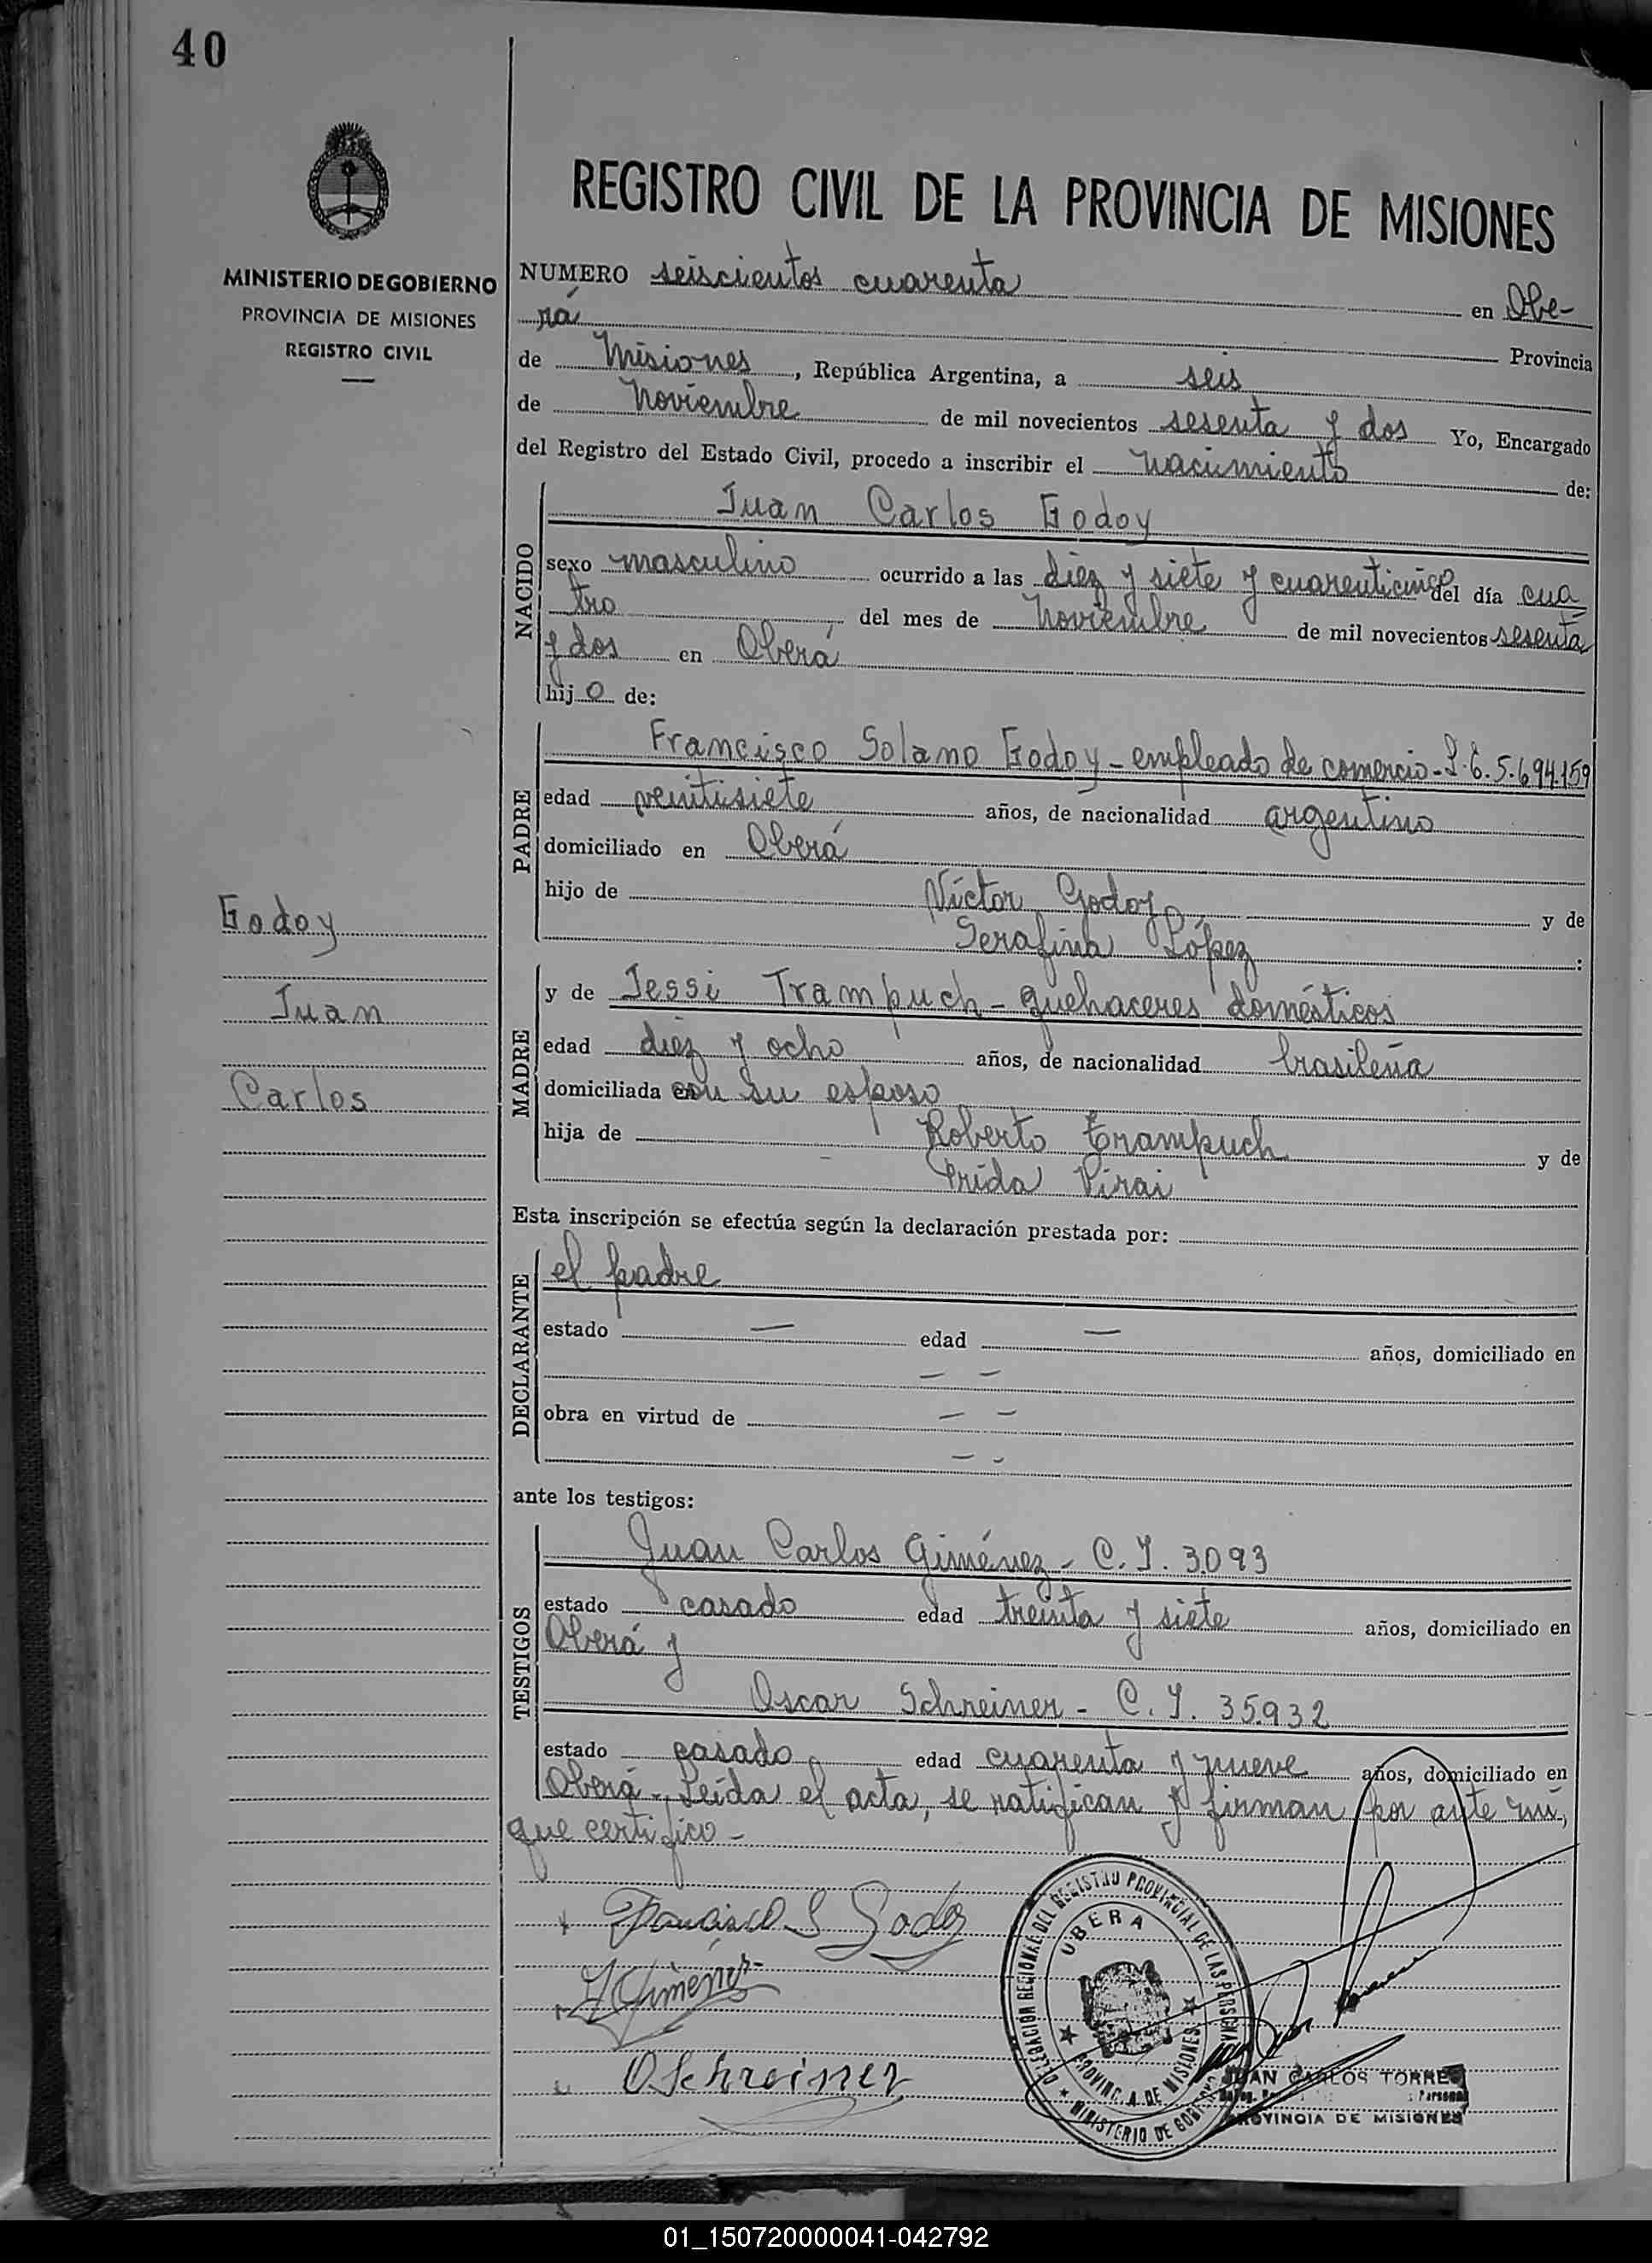 40
MINISTERIO DE GOBIERNO
PROVINCIA DE MISIONES
REGISTRO CIVIL
Godoy
Juan
Carlos
REGISTRO CIVIL DE LA PROVINCIA DE MISIONES
NUMERO seiscientos cuarenta en Obe-
rá Provincia
de Misiones, República Argentina, a seis
de Noviembre de mil novecientos sesenta y dos Yo, Encargado
del Registro del Estado Civil, procedo a inscribir el nacimiento de:
NACIDO
Juan Carlos Godoy
sexo masculino ocurrido a las diez y siete y cuarenticinco del día cua
tro del mes de Noviembre de mil novecientos sesenta
y dos en Oberá
hijo de:
PADRE
Francisco Solano Godoy - empleado de comercio - L.E. 5.694.159
edad veintisiete años, de nacionalidad argentino
domiciliado en Oberá
hijo de Víctor Godoy y de
Serafina López :
MADRE
y de Jessi Trampuch - quehaceres domésticos
edad diez y ocho años, de nacionalidad brasileña
domiciliada con su esposo
hija de Roberto Trampuch y de
Frida Pirai
Esta inscripción se efectúa según la declaración prestada por:
DECLARANTE
el padre
estado — edad — años, domiciliado en
— —
obra en virtud de — —
— -
ante los testigos:
TESTIGOS
Juan Carlos Giménez - C.I. 3.093
estado casado edad treinta y siete años, domiciliado en
Oberá y
Oscar Schreiner - C.I. 35.932
estado casado edad cuarenta y nueve años, domiciliado en
Oberá - Leída el acta, se ratifican y firman por ante mí,
que certifico -
Francisco S Godoy
J C Giménez
O Schreiner
DELEGACIÓN REGIONAL DEL REGISTRO PROVINCIAL DE LAS PERSONAS
OBERA
PROVINCIA DE MISIONES
MINISTERIO DE GOBIERNO
JUAN CARLOS TORRES
PROVINCIA DE MISIONES
01_150720000041-042792